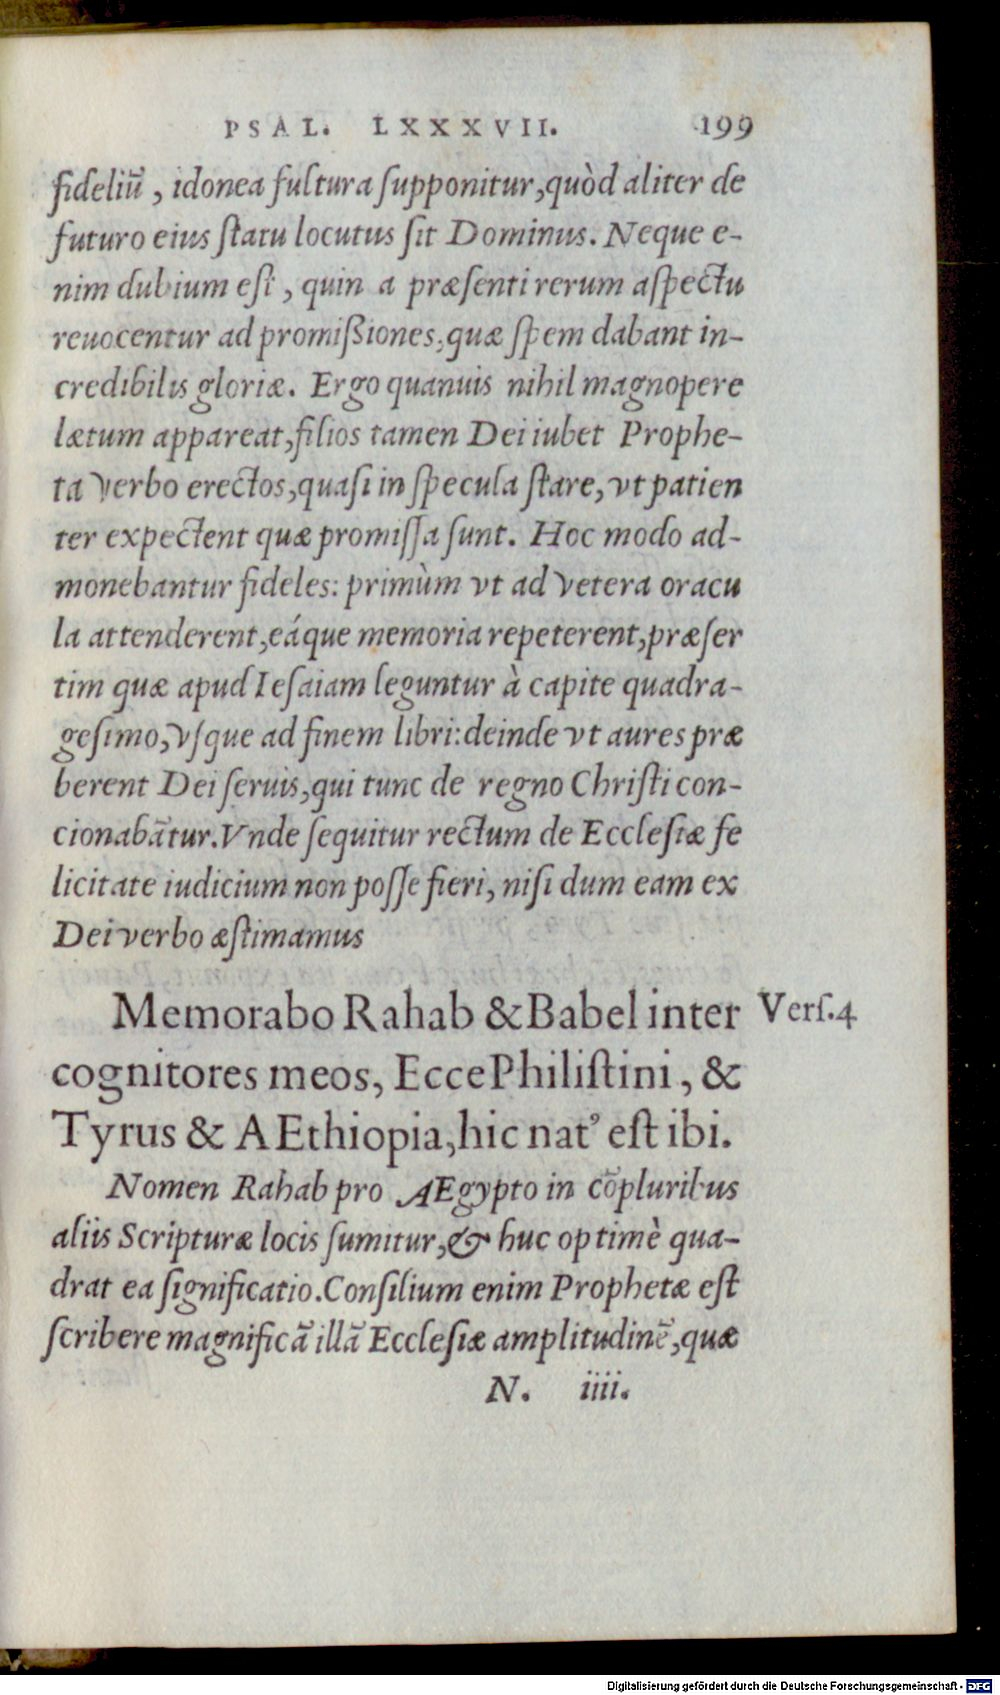 PSAL. LXXXVII. 199
fideliũ, idonea fultura supponitur, quòd aliter de
futuro eius statu locutus sit Dominus. Neque e-
nim dubium est, quin a præsenti rerum aspectu
reuocentur ad promißiones, quæ spem dabant in-
credibilis gloriæ. Ergo quanuis nihil magnopere
lætum appareat, filios tamen Dei iubet Prophe-
ta verbo erectos, quasi in specula stare, vt patien
ter expectent quæ promissa sunt. Hoc modo ad-
monebantur fideles: primùm vt ad vetera oracu
la attenderent, eáque memoria repeterent, præser
tim quæ apud Iesaiam leguntur à capite quadra-
gesimo, vsque ad finem libri: deinde vt aures præ
berent Dei seruis, qui tunc de regno Christi con-
cionabãtur. Vnde sequitur rectum de Ecclesiæ fe
licitate iudicium non posse fieri, nisi dum eam ex
Dei verbo æstimamus
Memorabo Rahab & Babel inter Vers.4
cognitores meos, Ecce Philistini, &
Tyrus & AEthiopia, hic natꝰ est ibi.
Nomen Rahab pro AEgypto in cõpluribus
aliis Scripturæ locis sumitur, & huc optimè qua-
drat ea significatio. Consilium enim Prophetæ est
scribere magnificã illã Ecclesiæ amplitudinẽ, quæ
N. iiii.
Digitalisierung gefördert durch die Deutsche Forschungsgemeinschaft - DFG